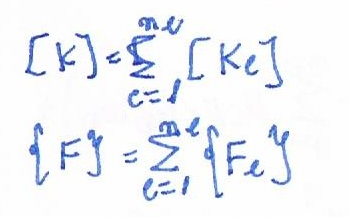 [K] = \sum_{e=1}^{ne} [Ke]
{F} = \sum_{e=1}^{ne} {Fe}